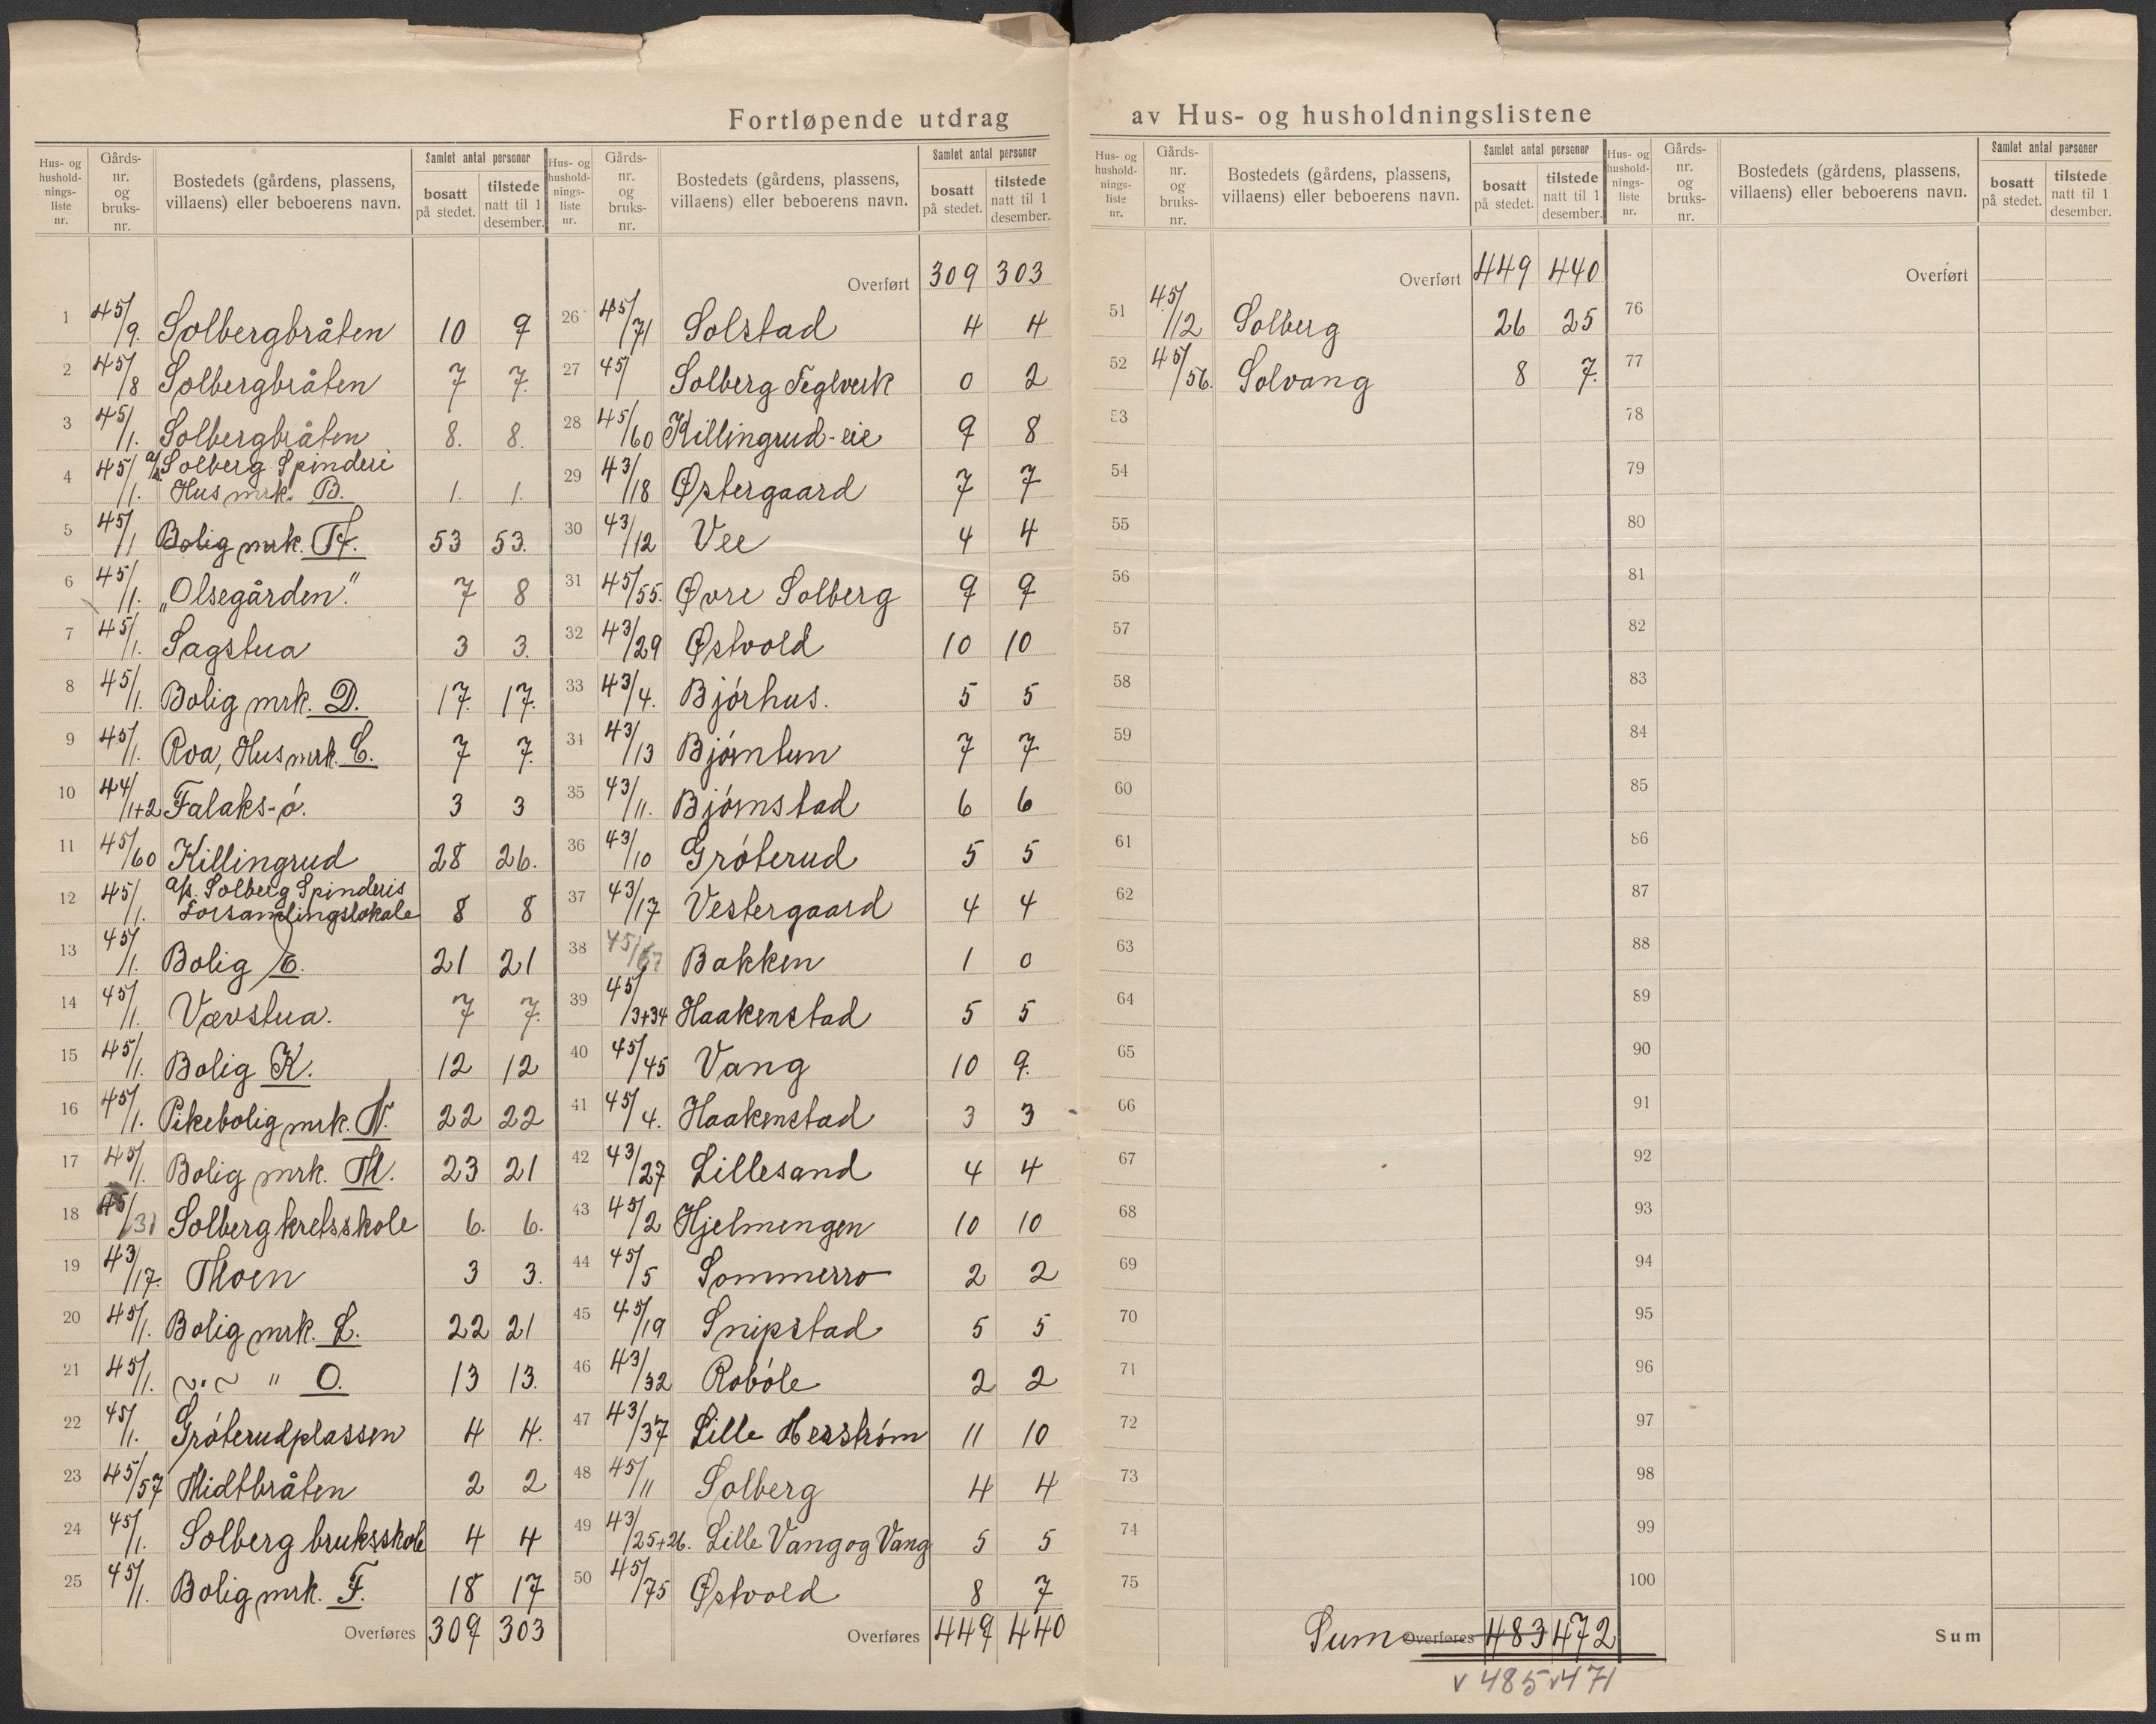 Fortløpende utdrag av Hus- og husholdningslistene
Hus- og hushold-nings-liste nr. Gårds-nr. og bruks-nr. Bostedets (gårdens, plassens, villaens) eller beboerens navn. Samlet antal personer bosatt på stedet. tilstede natt til 1 desember.
1 45/9. Solbergbråten 10 9
2 45/8 Solbergbråten 7 7.
3 45/1. Solbergbråten 8. 8.
4 45/1. a/s Solberg Spinderi
Hus mrk. B. 1. 1.
5 45/1 Bolig mrk. H. 53 53.
6 45/1. „Olsegården". 7 8
7 45/1. Sagstua 3 3.
8 45/1. Bolig mrk. D. 17. 17.
9 45/1. Roa, Hus mrk. C. 7 7.
10 44/1+2 Falaks-ó. 3 3
11 45/60 Killingrud 28 26.
12 45/1. a/s. Solberg Spinderis
Forsamlingslokale 8 8
13 45/1. Bolig E. 21 21
14 45/1. Vævstua. 7 7.
15 45/1. Bolig K. 12 12
16 45/1. Pikebolig mrk. N. 22 22
17 45/1. Bolig mrk. M. 23 21
18 45/31 Solberg kretsskole 6. 6.
19 43/17. Moen 3 3.
20 45/1. Bolig mrk. L. 22 21
21 45/1. ~"~ " O. 13 13.
22 45/1. Gróterudplassen 4 4.
23 45/57 Midtbråten 2 2
24 45/1. Solberg bruksskole 4 4
25 45/1. Bolig mrk. F. 18 17
Overføres 309 303
Hus- og hushold-nings-liste nr. Gårds-nr. og bruks-nr. Bostedets (gårdens, plassens, villaens) eller beboerens navn. Samlet antal personer bosatt på stedet. tilstede natt til 1 desember.
Overført 309 303
26 45/71 Solstad 4 4
27 45/ Solberg Teglverk 0 2
28 45/60 Killingrud-eie 9 8
29 43/18 Østergaard 7 7
30 43/12 Vee 4 4
31 45/55. Øvre Solberg 9 9
32 43/29 Østvold 10 10
33 43/4. Bjórhus. 5 5
34 43/13 Bjórntun 7 7
35 43/11. Bjórnstad 6 6
36 43/10 Gróterud 5 5
37 43/17 Vestergaard 4 4
38 45/67 Bakken 1 0
39 45/3+34 Haakenstad 5 5
40 45/45 Vang 10 9.
41 45/4. Haakenstad 3 3
42 43/27 Lillesand 4 4
43 45/2 Hjelmengen 10 10
44 45/5 Sommerro 2 2
45 45/19 Snipstad 5 5
46 43/32 Robóle 2 2
47 43/37 Lille Herstróm 11 10
48 45/11 Solberg 4 4
49 43/25+26. Lille Vang og Vang 5 5
50 45/75 Østvold 8 7
Overføres 449 440
Hus- og hushold-nings-liste nr. Gårds-nr. og bruks-nr. Bostedets (gårdens, plassens, villaens) eller beboerens navn. Samlet antal personer bosatt på stedet. tilstede natt til 1 desember.
Overført 449 440
51 45/12 Solberg 26 25
52 45/56. Solvang 8 7.
53
54
55
56
57
58
59
60
61
62
63
64
65
66
67
68
69
70
71
72
73
74
75
Sum Overføres 483 472
v 485 v 471
Hus- og hushold-nings-liste nr. Gårds-nr. og bruks-nr. Bostedets (gårdens, plassens, villaens) eller beboerens navn. Samlet antal personer bosatt på stedet. tilstede natt til 1 desember.
Overført
76
77
78
79
80
81
82
83
84
85
86
87
88
89
90
91
92
93
94
95
96
97
98
99
100
Sum